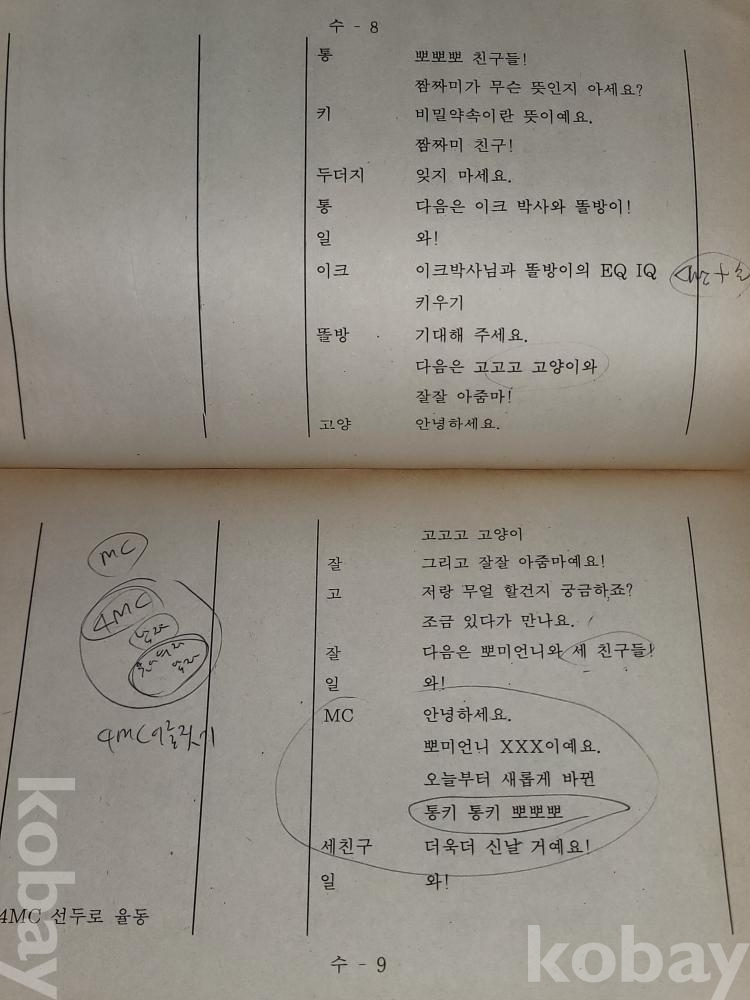 수 - 8
통 뽀뽀뽀 친구들!
짬짜미가 무슨 뜻인지 아세요?
키 비밀약속이란 뜻이예요.
짬짜미 친구!
두더지 잊지 마세요.
통 다음은 이크 박사와 똘방이!
일 와!
이크 이크박사님과 똘방이의 EQ IQ
키우기
똘방 기대해 주세요.
다음은 고고고 고양이와
잘잘 아줌마!
고양 안녕하세요.
고고고 고양이
MC
잘 그리고 잘잘 아줌마예요!
고 저랑 무얼 할건지 궁금하죠?
4MC
조금 있다가 만나요.
잘 다음은 뽀미언니와 세 친구들!
일 와!
MC 안녕하세요.
4MC
뽀미언니 XXX이예요.
오늘부터 새롭게 바뀐
통키 통키 뽀뽀뽀
세친구 더욱더 신날 거예요!
일 와!
4MC 선두로 율동
수 - 9
kobay
kobay